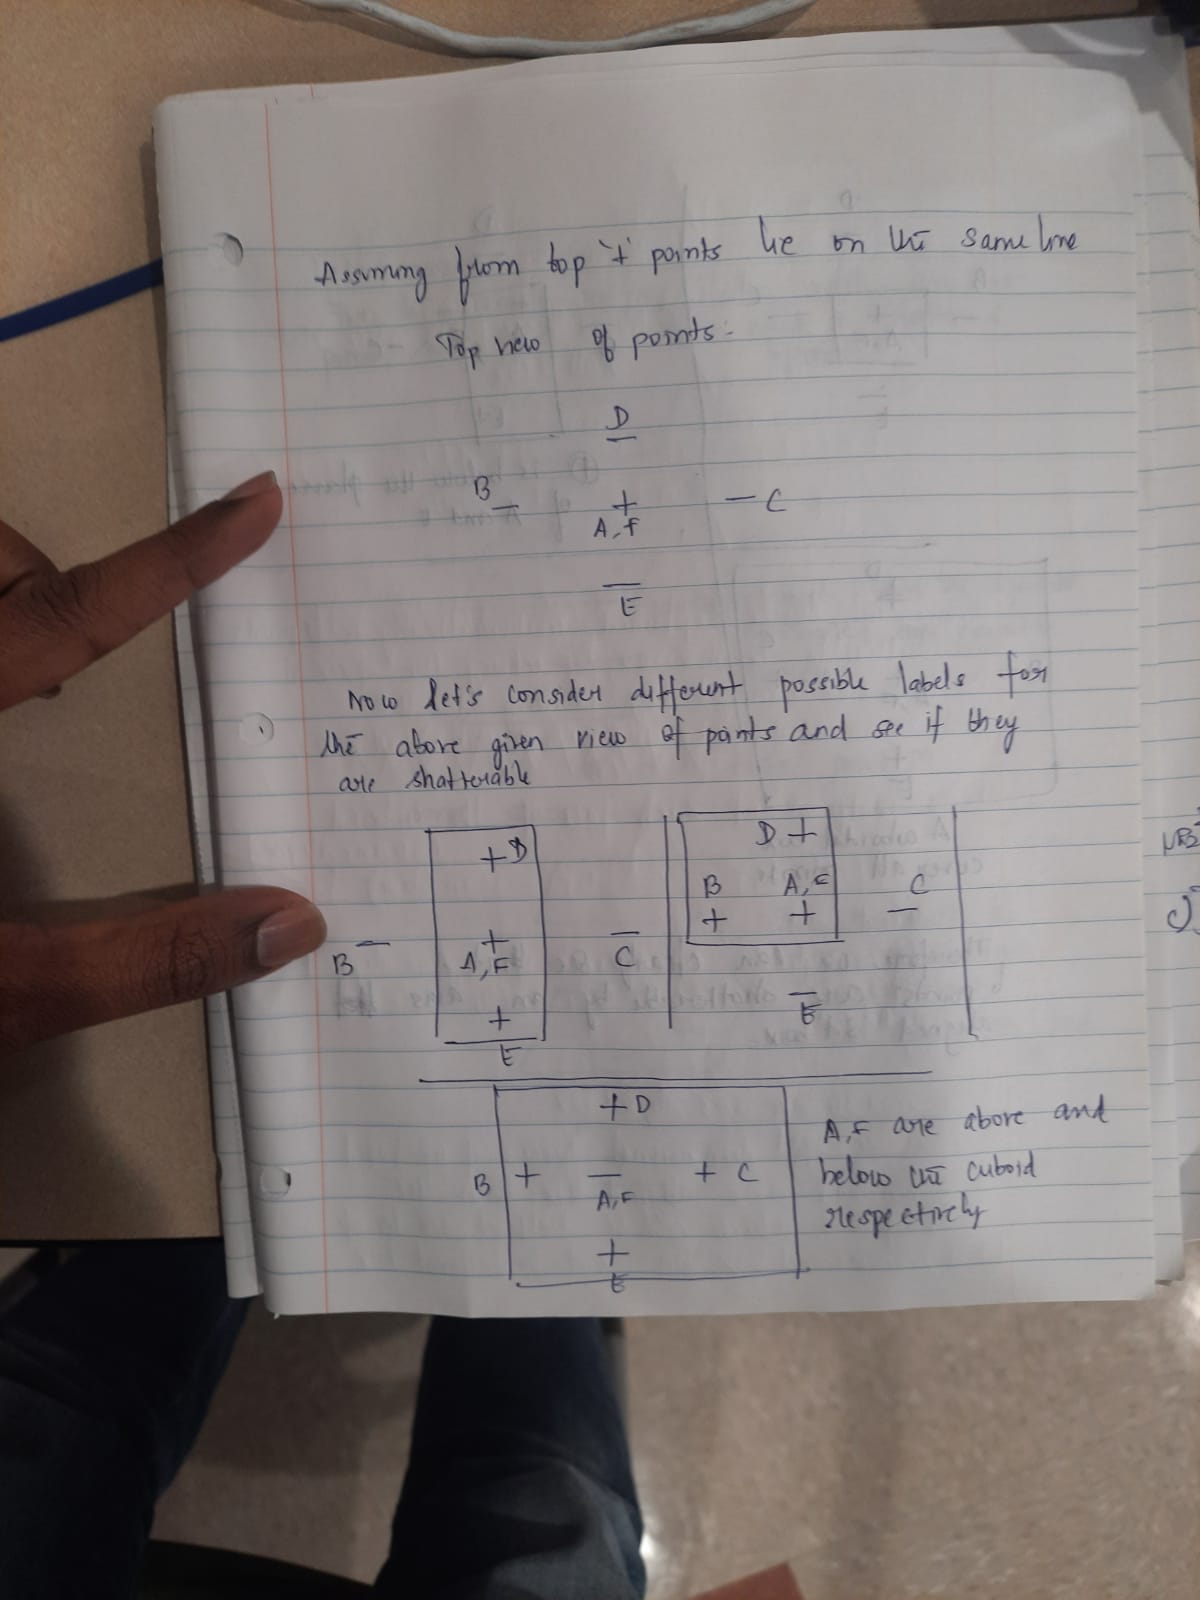 Assuming from top '+' points lie on the same line
Top view of points:
D
—
B — + — C
A, F
—
E
Now let's consider different possible labels for
the above given view of points and see if they
are shatterable
+ D
+
B — A, F — C
+
E
D +
B A, F C
+ + —
—
E
+ D
B + — + C
A, F
+
E
A, F are above and
below the cuboid
respectively